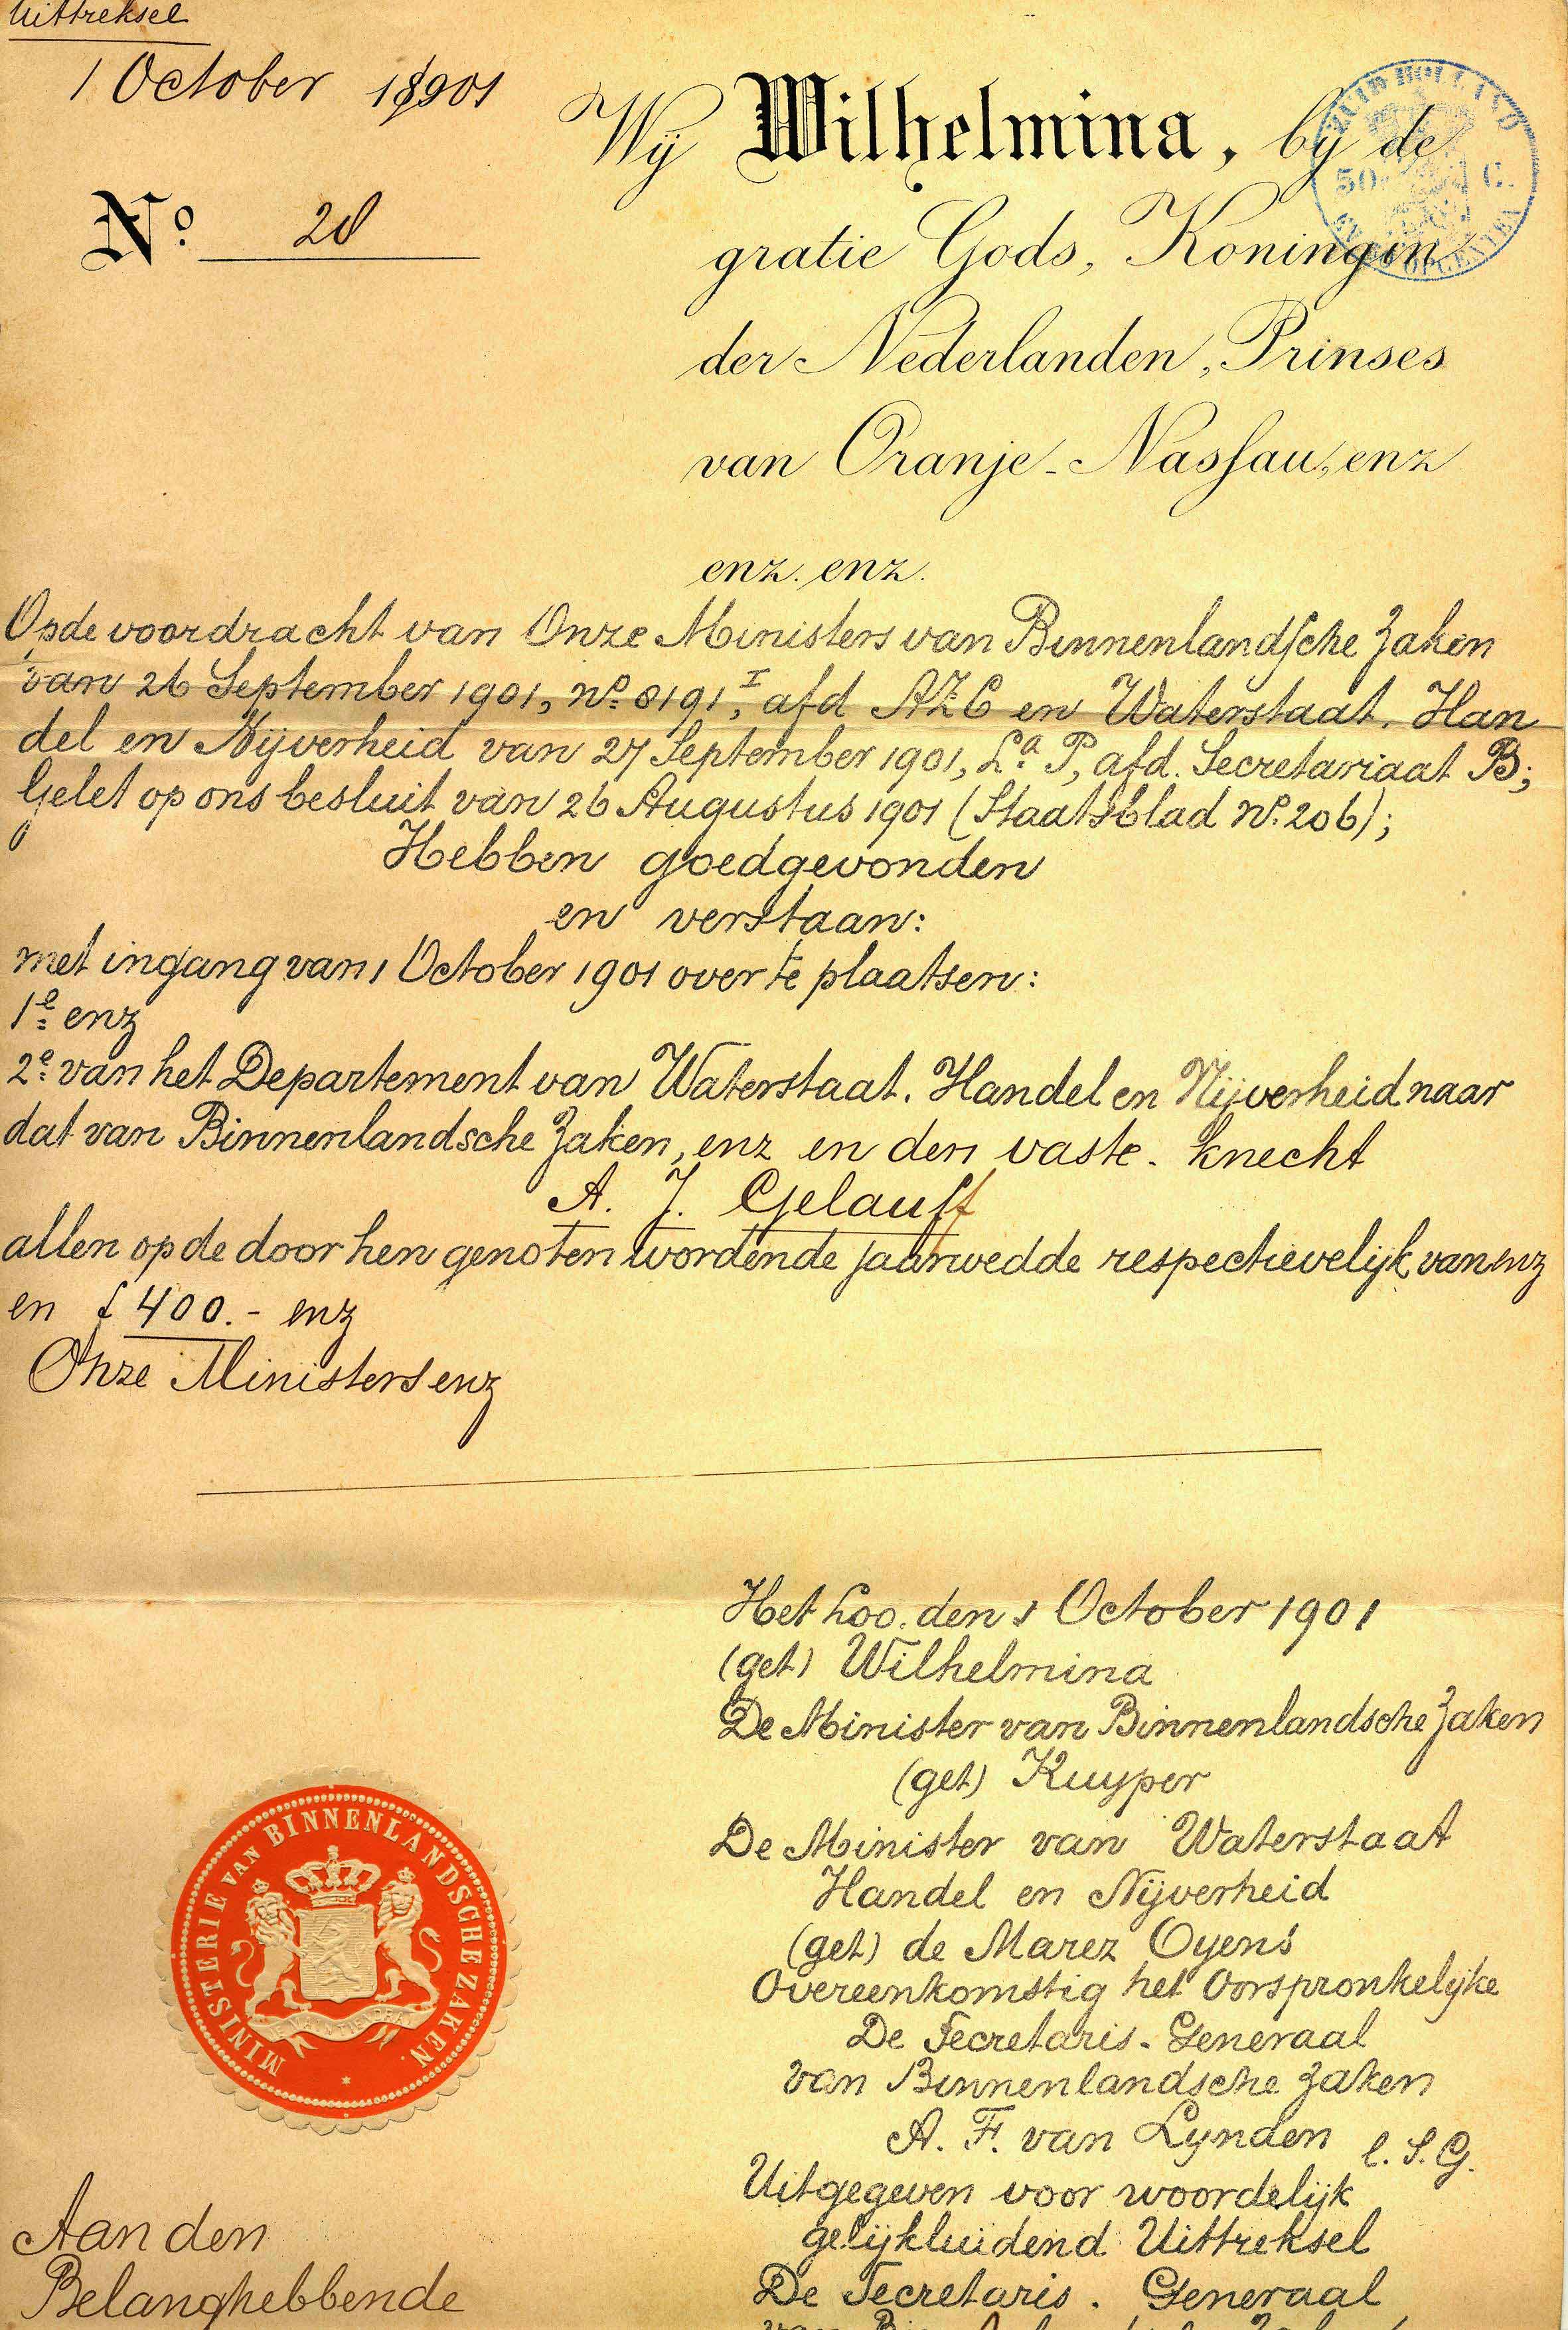 Uittreksel
1 October 1901
No. 28
Wij Wilhelmina, bij de
gratie Gods, Koningin
der Nederlanden, Prinses
van Oranje-Nassau, enz
enz. enz.
ZUID HOLLAND
50 C.
OPCENTEN
Op de voordracht van Onze Ministers van Binnenlandsche Zaken
van 26 September 1901, no. 8191 I, afd AZC en Waterstaat, Han
del en Nijverheid van 27 September 1901, La. P, afd. Secretariaat B;
Gelet op ons besluit van 26 Augustus 1901 (Staatsblad no. 206);
Hebben goedgevonden
en verstaan:
met ingang van 1 October 1901 over te plaatsen:
1e. enz
2e. van het Departement van Waterstaat, Handel en Nijverheid naar
dat van Binnenlandsche Zaken, enz en den vaste-knecht
A. J. Gelauff
allen op de door hen genoten wordende jaarwedde respectievelijk van enz
en f 400.- enz
Onze Ministers enz
Het Loo, den 1 October 1901
(get) Wilhelmina
De Minister van Binnenlandsche Zaken
(get) Kuyper
De Minister van Waterstaat
Handel en Nijverheid
(get) de Marez Oyens
Overeenkomstig het Oorspronkelijke
De Secretaris-Generaal
van Binnenlandsche Zaken
A. F. van Lynden l. S. G.
Uitgegeven voor woordelijk
gelijkluidend Uittreksel
De Secretaris-Generaal
MINISTERIE VAN BINNENLANDSCHE ZAKEN.
Aan den
Belanghebbende